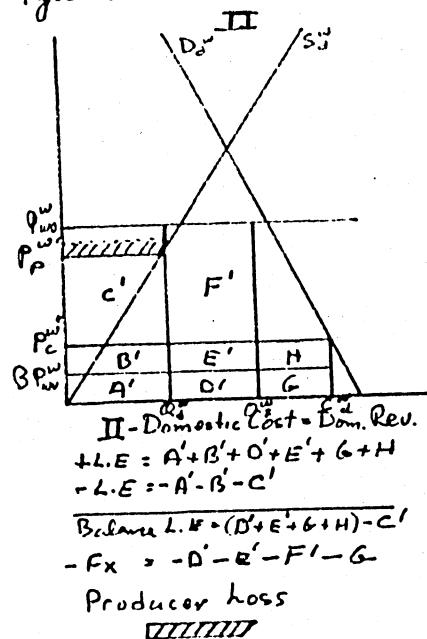 II
D_d^w S_d^w
P_wo^w
P_p^w
C' F'
P_c^w
B' E' H
A' D' G
II-Domestic Cost = Dom. Rev.
+L.E = A'+B'+D'+E'+G+H
-L.E = -A'-B'-C'
Balance L.E = (D'+E'+G+H)-C'
-Fx = -D'-E'-F'-G
Producer Loss